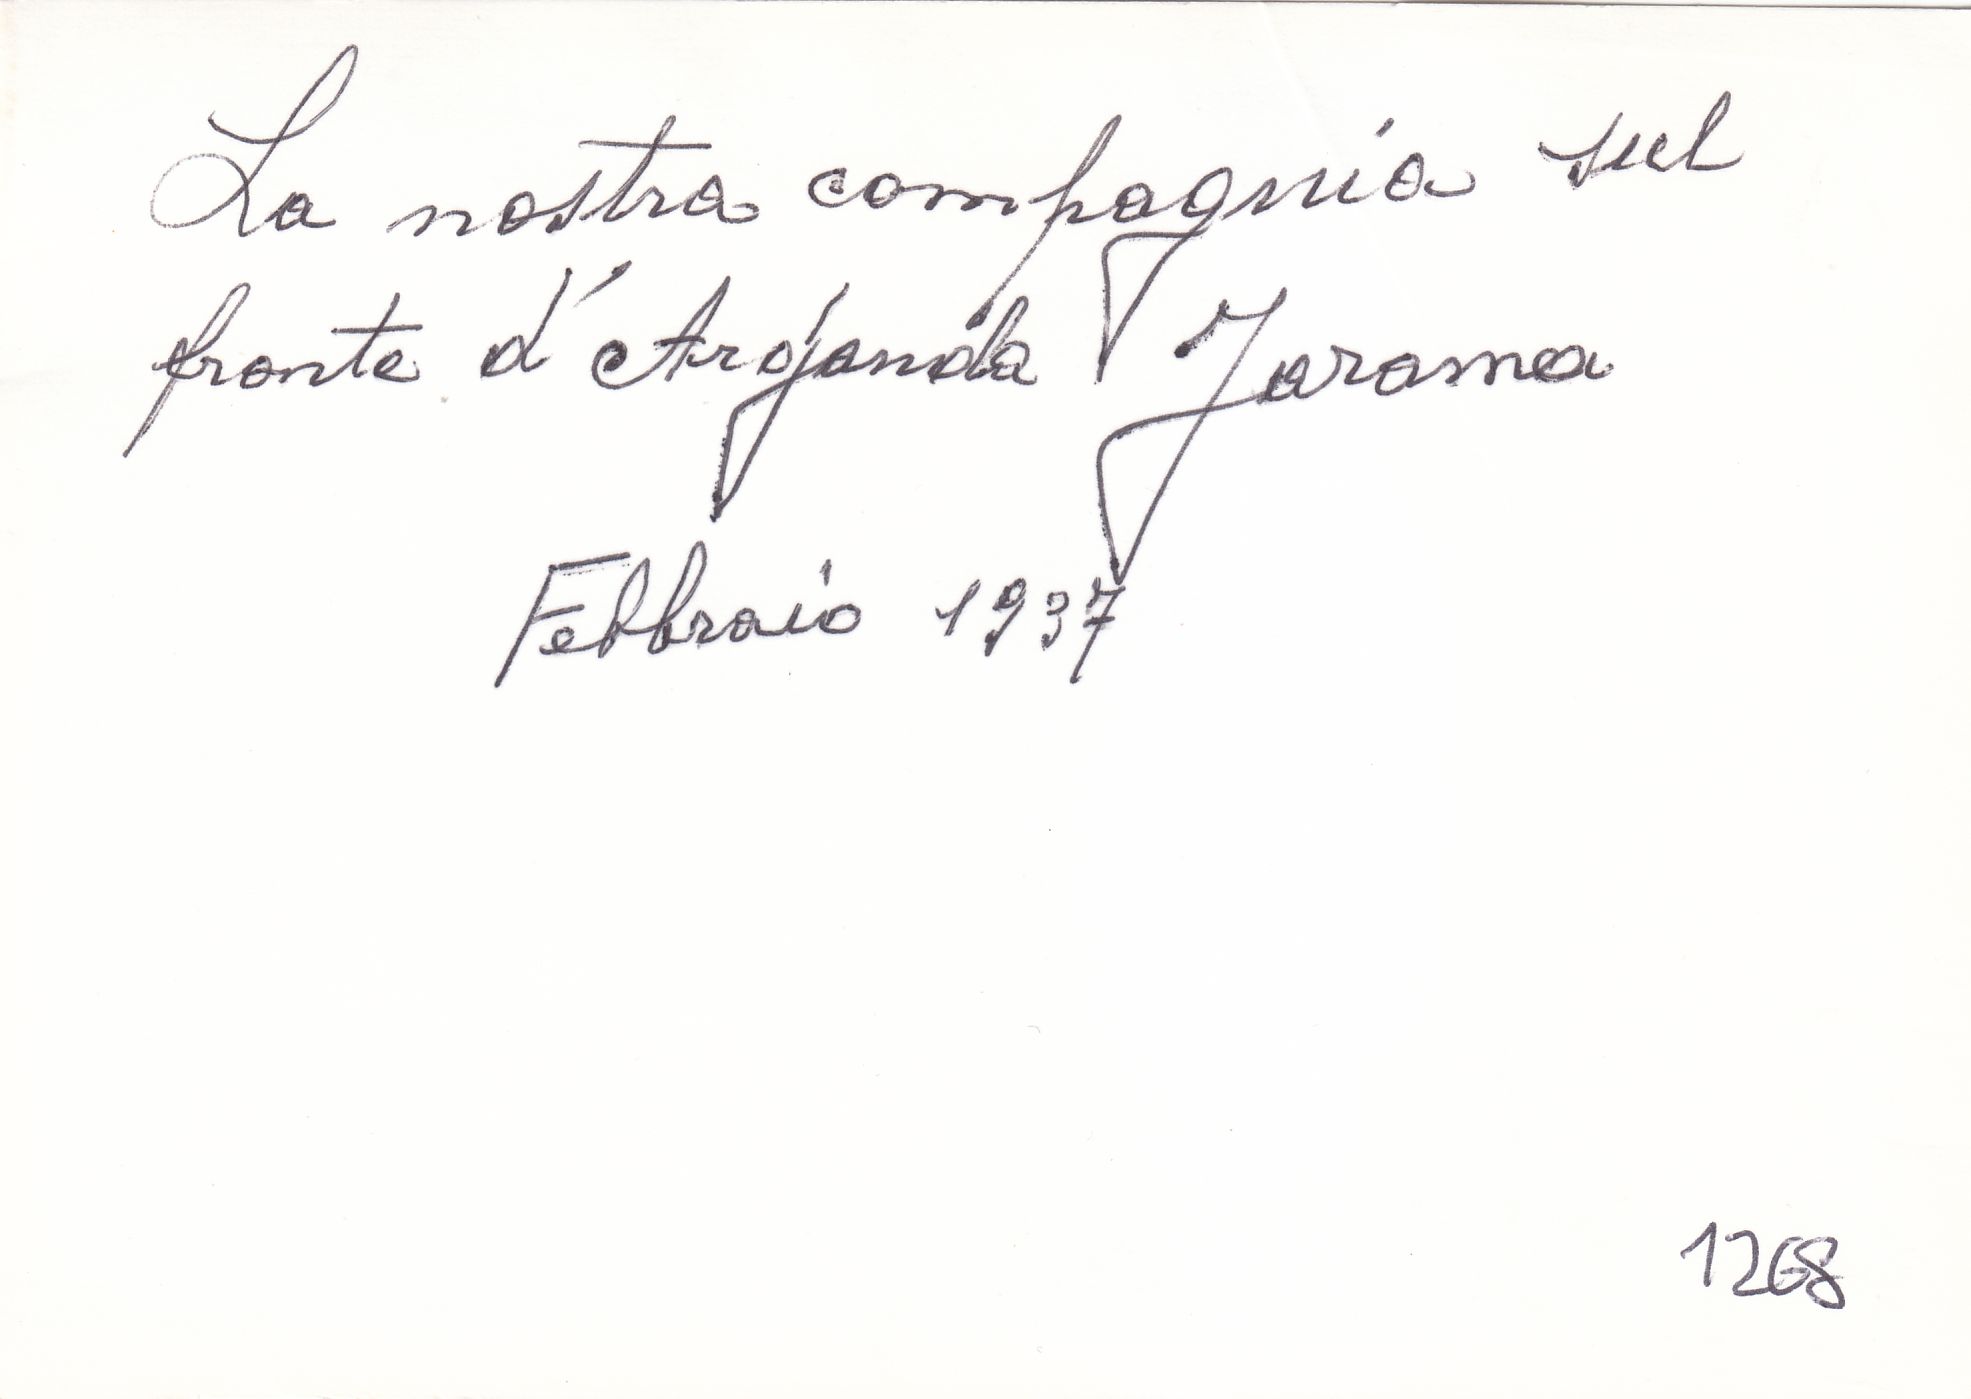 La nostra compagnia sul
fronte d'Arganda Jarama
Febbraio 1937
1268